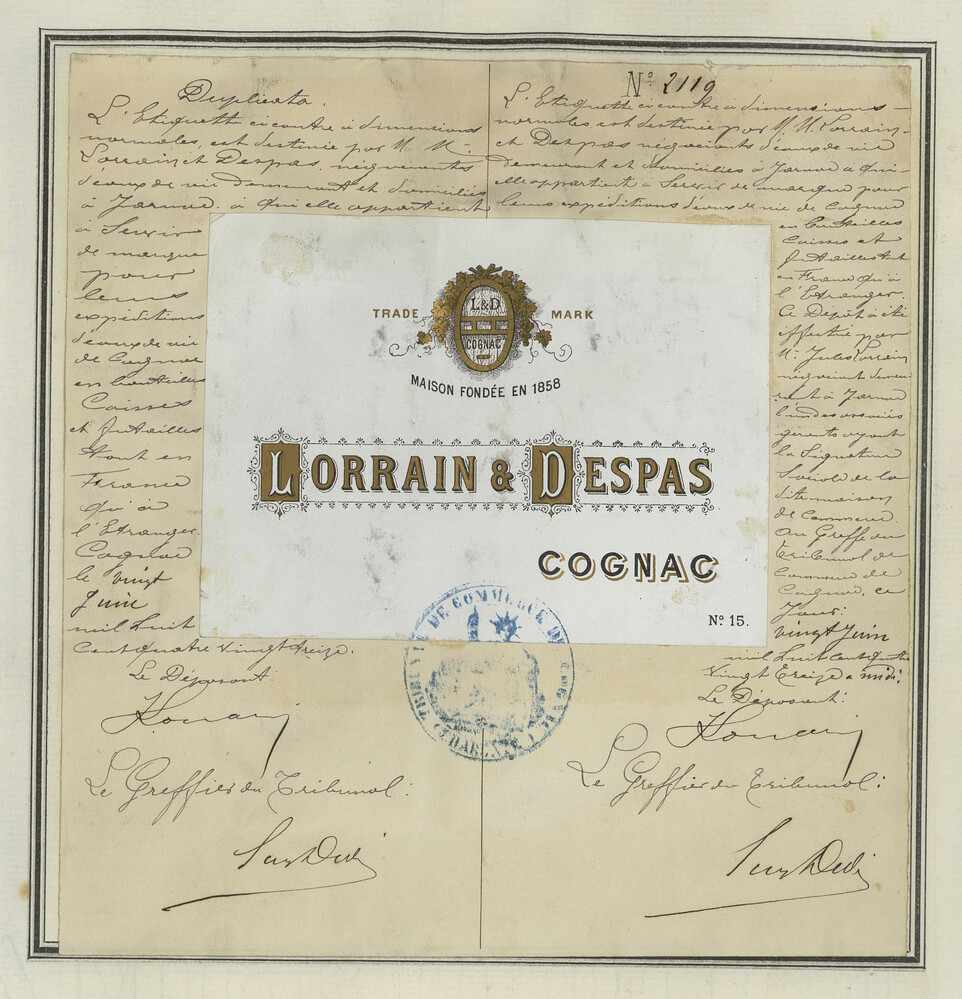 Duplicata.
L'Etiquette ci contre à dimensions
normales, est destinée par M. M.
Lorrain et Despas négociants
d'eaux de vie demeurant et domiciliés
à Jarnac. à qui elle appartient
à Servir
de marque
pour
leurs
expéditions
d'eaux de vie
de Cognac
en bouteilles
Caisses
et futailles
tant en
France
qu'à
l'Etranger.
Cognac
le vingt
Juin
mil huit
cent quatre vingt treize.
Le Déposant
Le Greffier du Tribunal:
N° 2119
L'Etiquette ci contre à dimensions
normales est destinée par M. M. Lorrain
et Despas négociants d'eaux de vie
demeurant et domiciliés à Jarnac à qui
elle appartient à Servir de marque pour
leurs expéditions d'eaux de vie de Cognac
en bouteilles
Caisses et
futailles tant
en France qu'à
l'Etranger.
Ce Dépôt a été
effectué par
Mr Jules Lorrain
négociant demeu
rant à Jarnac
l'un des associés
gérants ayant
la Signature
Sociale de la
dite maison
de Commerce
au Greffe du
Tribunal de
Commerce de
Cognac, ce
Jour:
vingt Juin
mil huit cent quatre
vingt treize a midi.
Le Déposant:
Le Greffier du Tribunal:
TRADE MARK
L&D
COGNAC
MAISON FONDÉE EN 1858
LORRAIN & DESPAS
COGNAC
N° 15.
TRIBUNAL DE COMMERCE DE COGNAC
(CHARENTE)